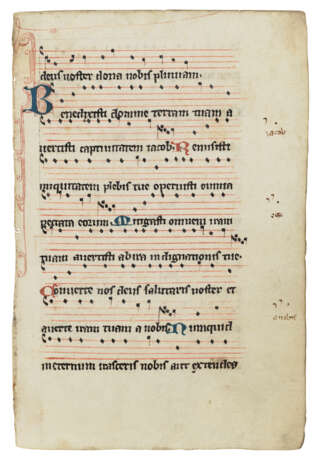 deus noster dona nobis pluuiam.
Benedixisti domine terram tuam a
uertisti captiuitatem iacob. Remisisti
iniquitatem plebis tue operuisti omnia
peccata eorum. Mitigasti omnem iram
tuam auertisti ab ira indignationis tue.
Conuerte nos deus salutaris noster et
auerte iram tuam a nobis. Numquid
ineternum irasceris nobis aut extendes
iacob